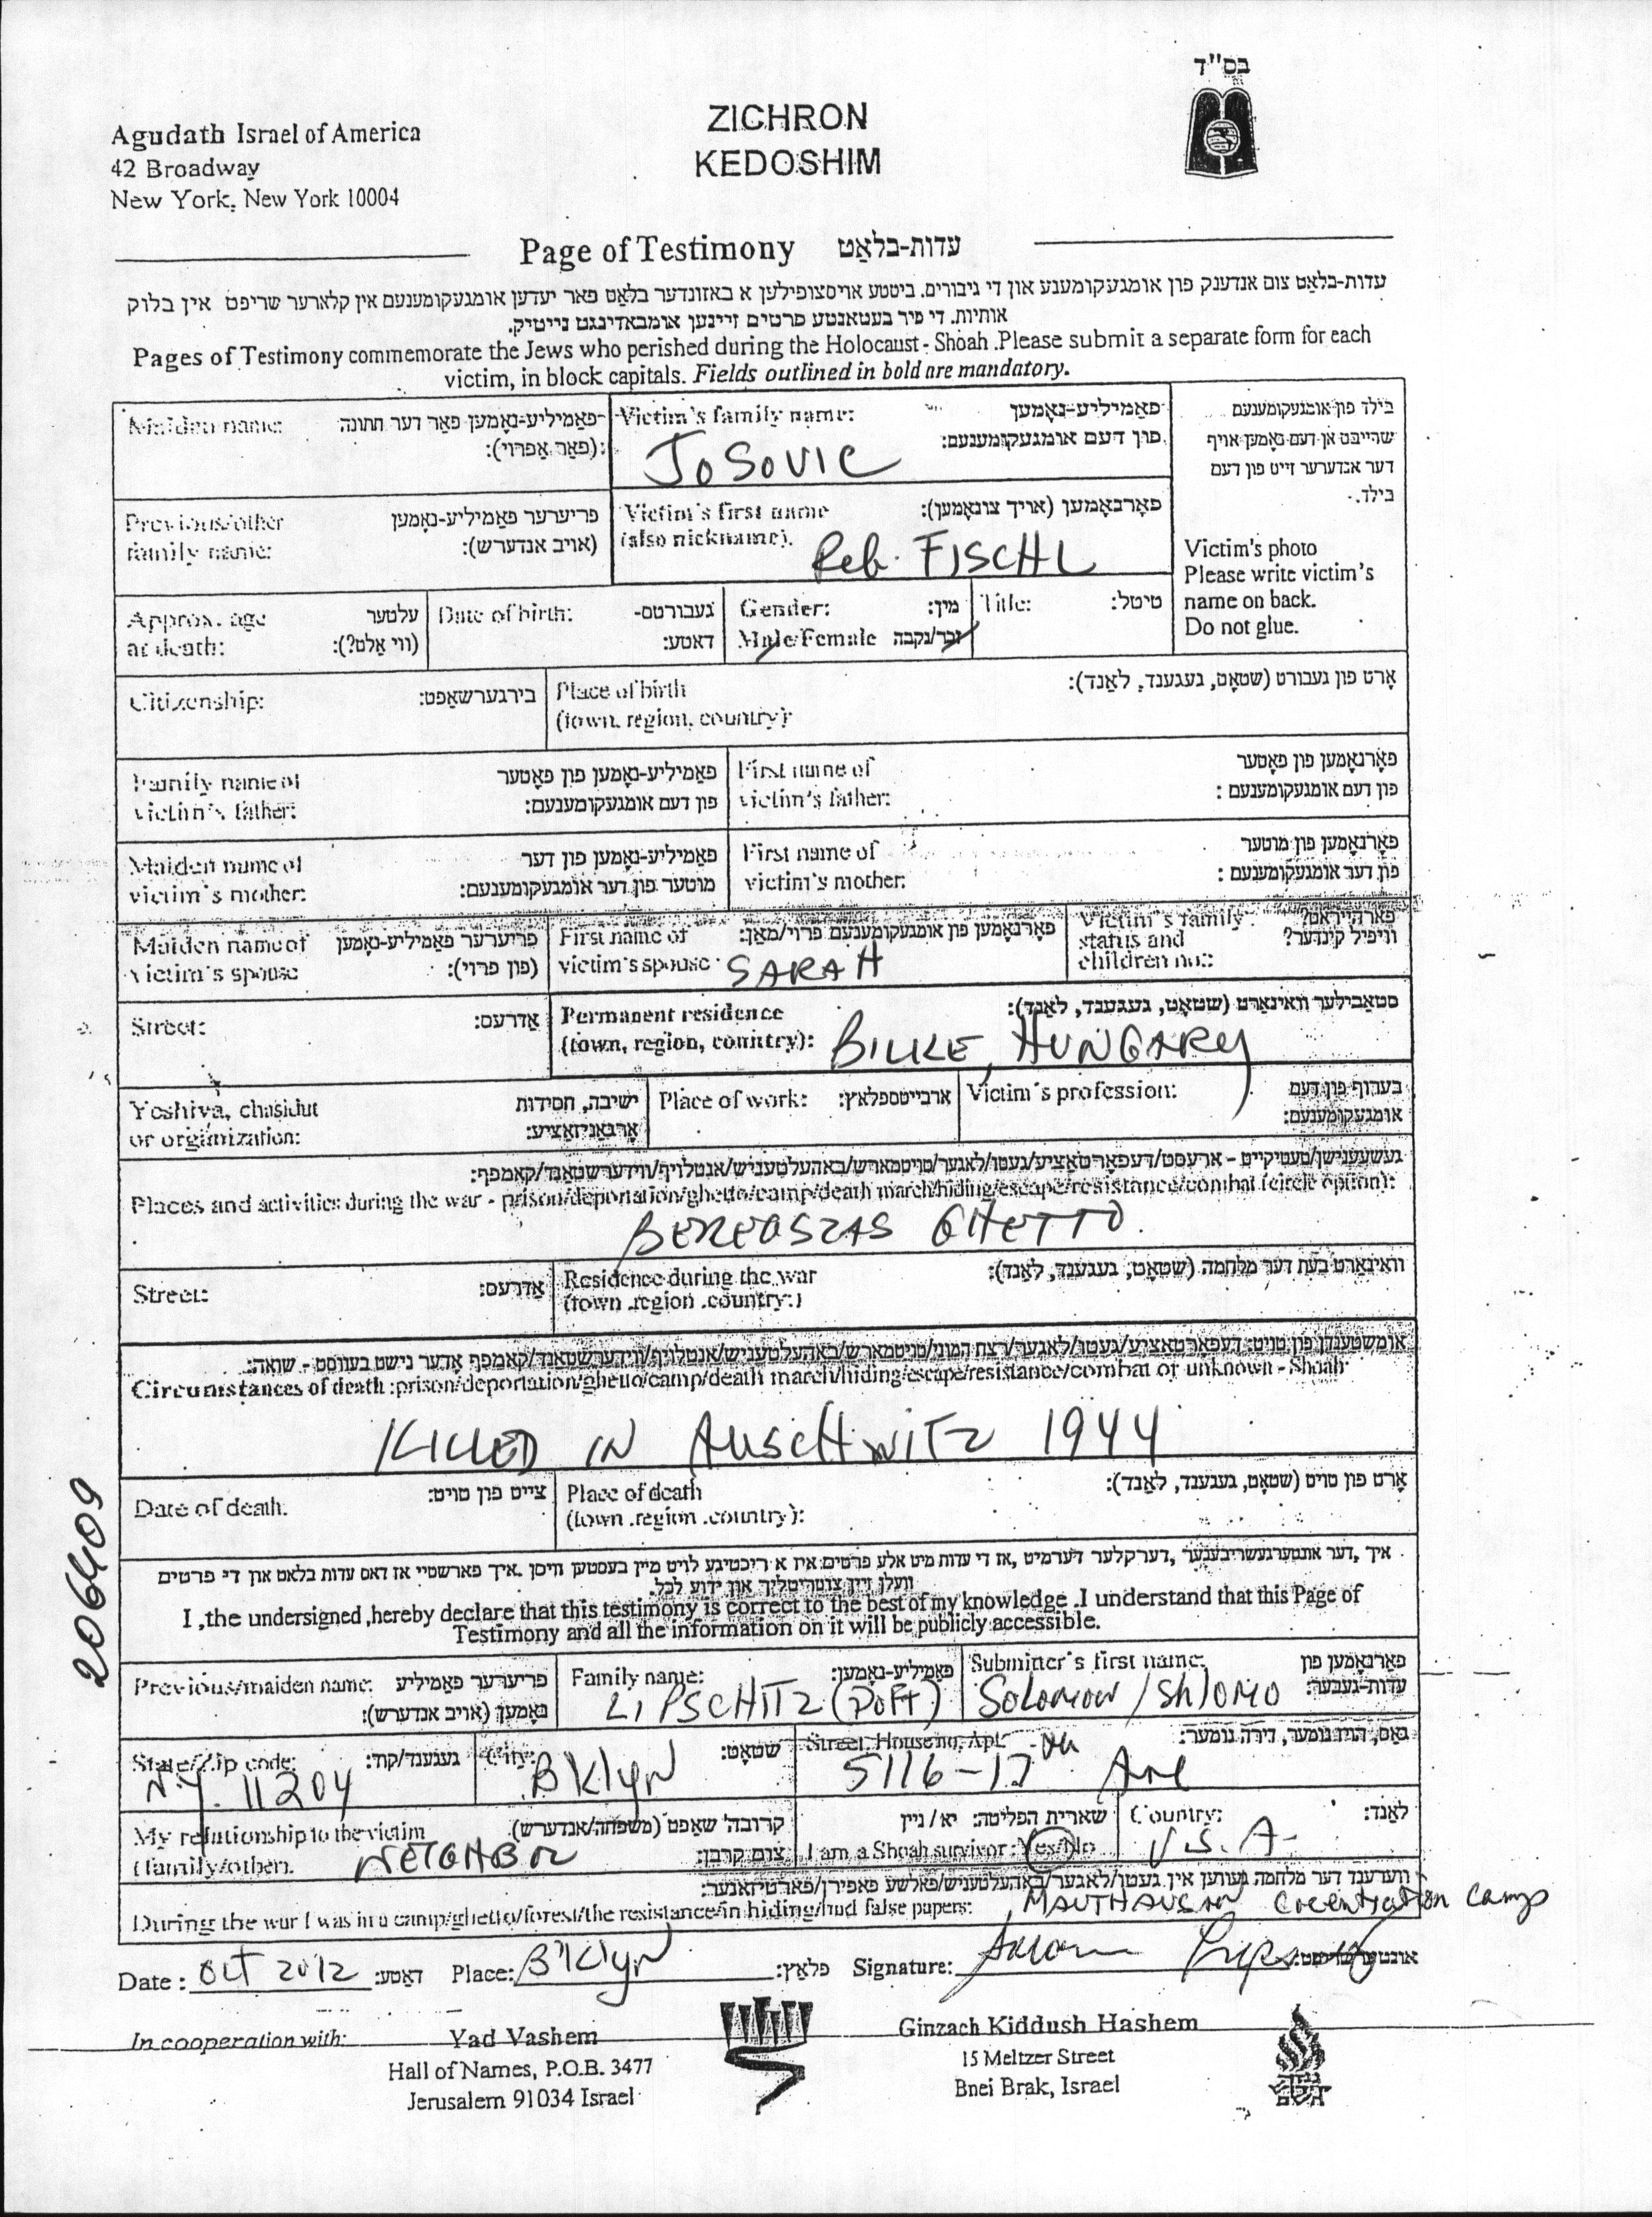 בס"ד
Agudath Israel of America
42 Broadway
New York, New York 10004
ZICHRON
KEDOSHIM
Page of Testimony עדות-בלאַט
עדות-בלאַט צום אנדענק פון אומגעקומענע און די גיבורים. ביטטע אויסצופילען א באזונדער בלאַט פאר יעדען אומגעקומענעם אין קלארער שריפט אין בלוק
אותיות. די פיר בעטאנטע פרטים זיינען אומבאדינגט נייטיק.
Pages of Testimony commemorate the Jews who perished during the Holocaust - Shoah .Please submit a separate form for each
victim, in block capitals. Fields outlined in bold are mandatory.
Maiden name: פאַמיליע-נאָמען פאַר דער חתונה
(פאַר אַפרוי):
Victim's family name: פאַמיליע-נאָמען
פון דעם אומגעקומענעם:
JOSOVIC
בילד פון אומגעקומענעם
שרייבט אן דעם נאָמען אויף
דער אנדערער זייט פון דעם
בילד.
Victim's photo
Please write victim's
name on back.
Do not glue.
Previous/other פריערער פאַמיליע-נאָמען
family name: (אויב אנדערש):
Victim's first name פאָרנאָמען (אויך צונאָמען):
(also nickname). Reb. FISCHL
Approx. age עלטער
at death: (ווי אַלט?):
Date of birth: געבורטס-
דאַטע:
Gender: מין:
Male/Female זכר/נקבה
Title: טיטל:
Citizenship: בירגערשאַפט:
Place of birth אָרט פון געבורט (שטאָט, געגענד, לאַנד):
(town, region, country):
Family name of פאַמיליע-נאָמען פון פאָטער
victim's father: פון דעם אומגעקומענעם:
First name of פאָרנאָמען פון פאָטער
victim's father: פון דעם אומגעקומענעם :
Maiden name of פאַמיליע-נאָמען פון דער
victim's mother: מוטער פון דער אומגעקומענעם:
First name of פאָרנאָמען פון מוטער
victim's mother: פון דער אומגעקומענעם :
Maiden name of פריערער פאַמיליע-נאָמען
victim's spouse (פון פרוי):
First name of פאָרנאָמען פון אומגעקומענעם פרוי/מאַן:
victim's spouse: SARAH
Victim's family פארהייראט?
status and וויפיל קינדער?
children no.:
Street: אַדרעס:
Permanent residence סטאַבילער וואוינאָרט (שטאָט, געגענד, לאַנד):
(town, region, country): BILKE, HUNGARY
Yeshiva, chasidut ישיבה, חסידות
or organization: אָרגאַניזאַציע:
Place of work: ארבייטספלאץ:
Victim's profession: בערוף פון דעם
אומגעקומענעם:
געשעענישן/טעטיקייט - ארעסט/דעפאָרטאַציע/געטו/לאַגער/טויטמארש/באַהעלטעניש/אנטלויף/ווידערשטאַנד/קאַמפף:
Places and activities during the war - prison/deportation/ghetto/camp/death march/hiding/escape/resistance/combat (circle option):
BEREGSZAS GHETTO
Street: אַדרעס:
Residence during the war וואוינאָרט בעת דער מלחמה (שטאָט, געגענד, לאַנד):
(town .region .country:)
אומשטענדן פון טויט: דעפאָרטאַציע/געטו/לאַגער/רצח המוני/טויטמארש/באַהעלטעניש/אנטלויף/ווידערשטאַנד/קאַמפף אָדער נישט בעוואוסט - שואה:
Circumstances of death :prison/deportation/ghetto/camp/death march/hiding/escape/resistance/combat or unknown - Shoah
KILLED IN AUSCHWITZ 1944
Date of death. צייט פון טויט:
Place of death אָרט פון טויט (שטאָט, געגענד, לאַנד):
(town .region .country):
2064109
איך ,דער אונטערגעשריבענער ,דערקלער דערמיט ,אז די עדות מיט אלע פרטים איז א ריכטיגע לויט מיין בעסטען וויסן .איך פארשטיי אז דאס עדות בלאט און די פרטים
וועלן זיין צוטריטליך און ידוע לכל.
I ,the undersigned ,hereby declare that this testimony is correct to the best of my knowledge .I understand that this Page of
Testimony and all the information on it will be publicly accessible.
Previous/maiden name: פריערער פאַמיליע
נאָמען (אויב אנדערש):
Family name: פאַמיליע-נאָמען:
LIPSCHITZ (DOFT)
Submitter's first name: פאָרנאָמען פון
עדות-געבער:
Solomon / Shlomo
State/Zip code: געגענד/קוד:
N.Y. 11204
City: שטאָט:
BKlyN
Street, House no, Apt. גאַס, הויז נומער, דירה נומער:
5116-17 th Ave
My relationship to the victim קרובה'שאַפט (משפחה/אנדערש)
(family/other). צום קרבן:
NEIGHBOR
שארית הפליטה: יא / ניין
I am a Shoah survivor : Yes/No
Country: לאַנד:
U.S.A.
ווערענד דער מלחמה געווען אין געטו/לאַגער/באַהעלטעניש/פאלשע פאפירן/פארטיזאנער:
During the war I was in a camp/ghetto/forest/the resistance/in hiding/had false papers: MAUTHAUSAN Cocentration Camp
Date : Oct 2012 דאַטע: Place: B'Klyn פלאַץ: Signature:
In cooperation with:
Yad Vashem
Hall of Names, P.O.B. 3477
Jerusalem 91034 Israel
Ginzach Kiddush Hashem
15 Meltzer Street
Bnei Brak, Israel